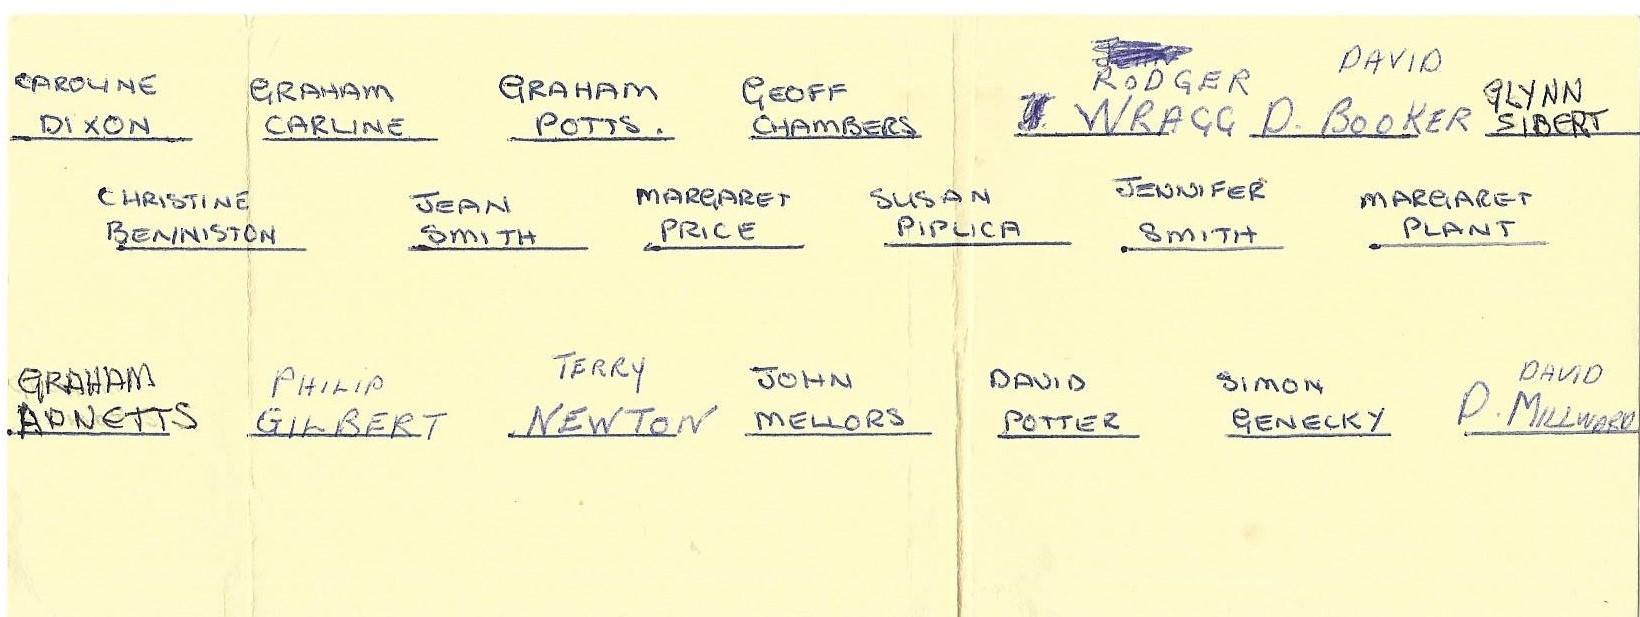 CAROLINE GRAHAM GRAHAM GEOFF RODGER DAVID GLYNN
DIXON CARLINE POTTS. CHAMBERS WRAGG D. BOOKER SIBERT
CHRISTINE JEAN MARGARET SUSAN JENNIFER MARGARET
BENNISTON SMITH PRICE PIPLICA SMITH PLANT
GRAHAM PHILIP TERRY JOHN DAVID SIMON DAVID
ADNETTS GILBERT NEWTON MELLORS POTTER GENECKY D. MILLWARD